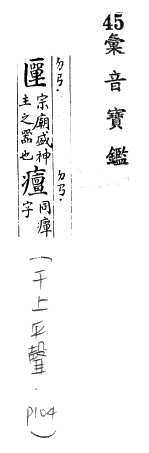 45彙音寶鑑
ㄉㄢ· 匰 宗廟盛神
主之器也
ㄉㄢ· 癉 同瘴
字
(干上平聲·P104)